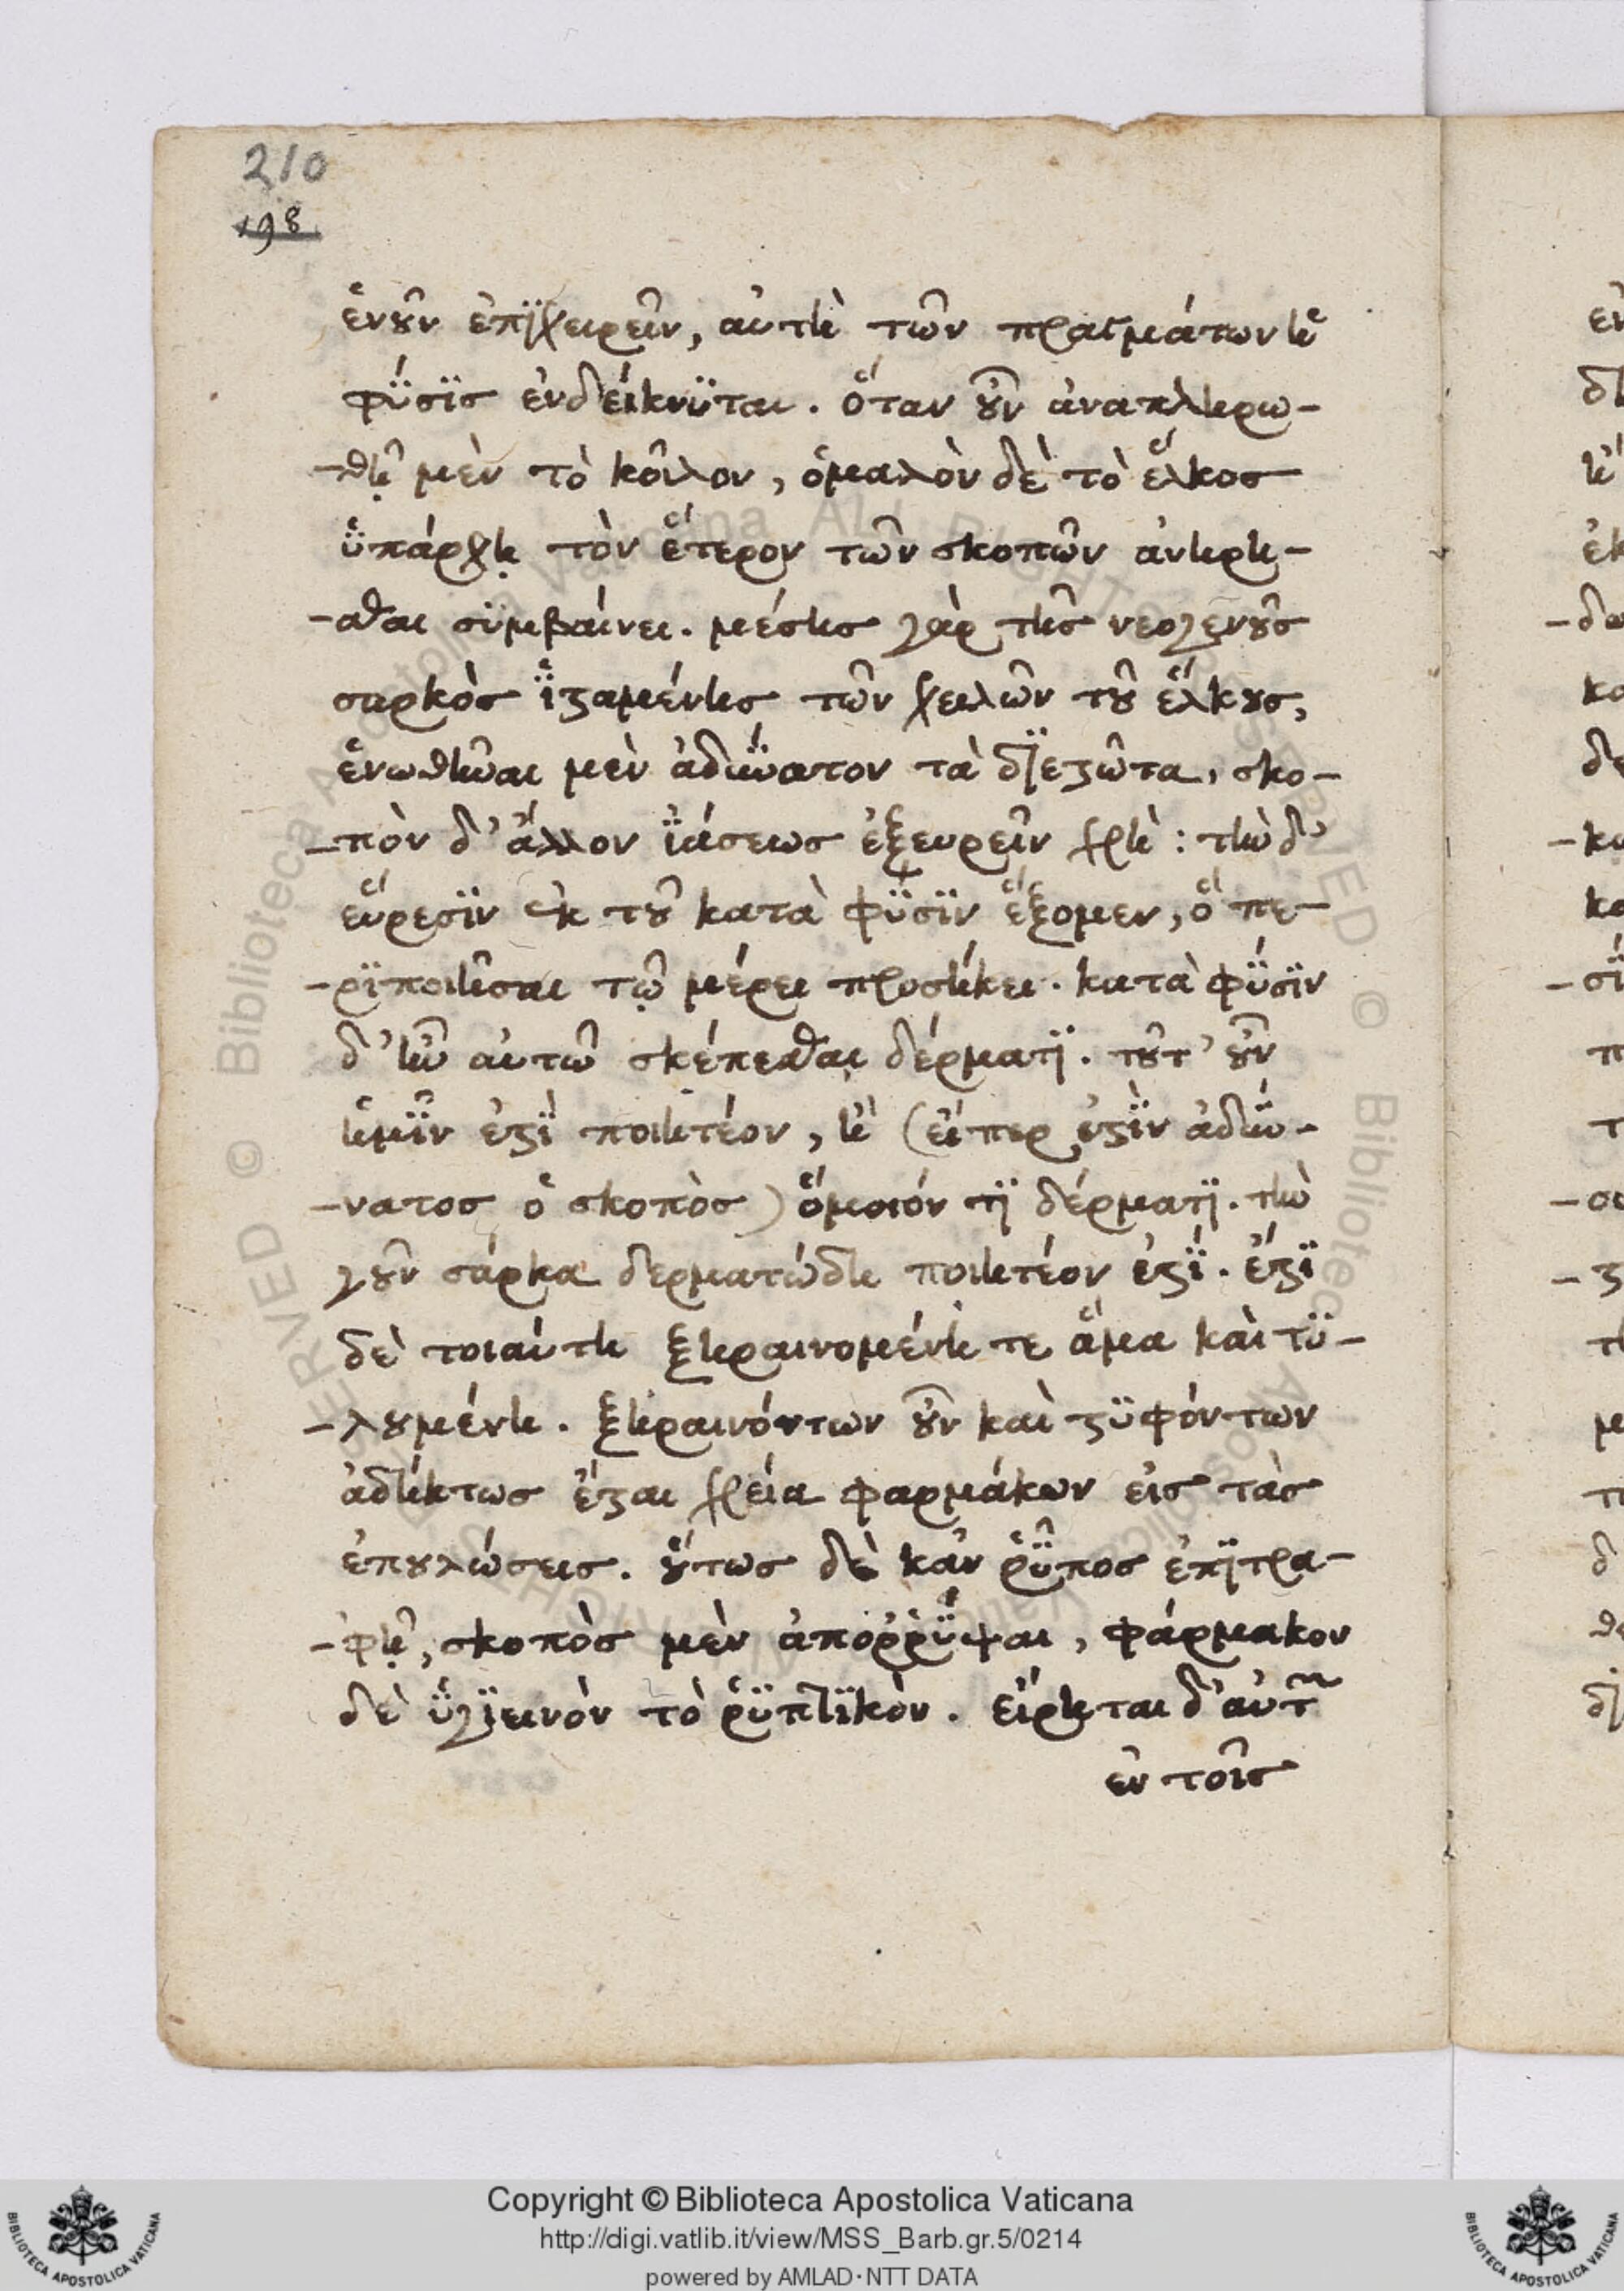 210
198
ἑνοῦν ἐπϊχειρεῖν, αὐτὴ τῶν πραγμάτων ἡ
φΰσϊς ἐνδείκνϋται. ὅταν οὖν ἀναπληρω-
-θῇ μὲν τὸ κοῖλον, ὁμαλὸν δὲ τὸ ἕλκος
ὑπάρχῃ τὸν ἕτερον τῶν σκοπῶν ἀνῃρῆ-
-σθαι συμβαίνει. μέσης γὰρ τῆς νεογενοῦς
σαρκὸς ἱσταμένης τῶν χειλῶν τοῦ ἕλκους,
ἑνωθῆναι μὲν ἀδύνατον τὰ διεστῶτα, σκο-
-πὸν δ' ἄλλον ἰάσεως ἐξευρεῖν χρή: τὴν δ'
εὕρεσϊν ἐκ τοῦ κατὰ φΰσϊν ἕξομεν, ὃ πε-
-ρϊποιῆσαι τῷ μέρει προσήκει. κατὰ φΰσϊν
δ' ἦν αὐτῶ σκέπεσθαι δέρματϊ. τοῦτ' οὖν
ἡμῖν ἐστὶ ποιητέον, ἢ (εἴπερ ἐστὶν ἀδύ-
-νατος ὁ σκοπὸς) ὅμοιόν τϊ δέρματϊ. τὴν
γοῦν σάρκα δερματώδη ποιητέον ἐστί. ἔστϊ
δὲ τοιαύτη ξηραινομένη τε ἅμα καὶ τϋ-
-λουμένη. ξηραινόντων οὖν καὶ στϋφόντων
ἀδήκτως ἔσται χρεία φαρμάκων εἰς τὰς
ἐπουλώσεις. οὕτως δὲ κἂν ῥῦπος ἐπϊτρα-
-φῇ, σκοπὸς μὲν ἀποῤῥύψαι, φάρμακον
δὲ ὑγϊεινὸν τὸ ῥϋπτϊκὸν. εἴρηται δ' αὐτ῀
ἐν τοῖς
Copyright © Biblioteca Apostolica Vaticana
http://digi.vatlib.it/view/MSS_Barb.gr.5/0214
powered by AMLAD·NTT DATA